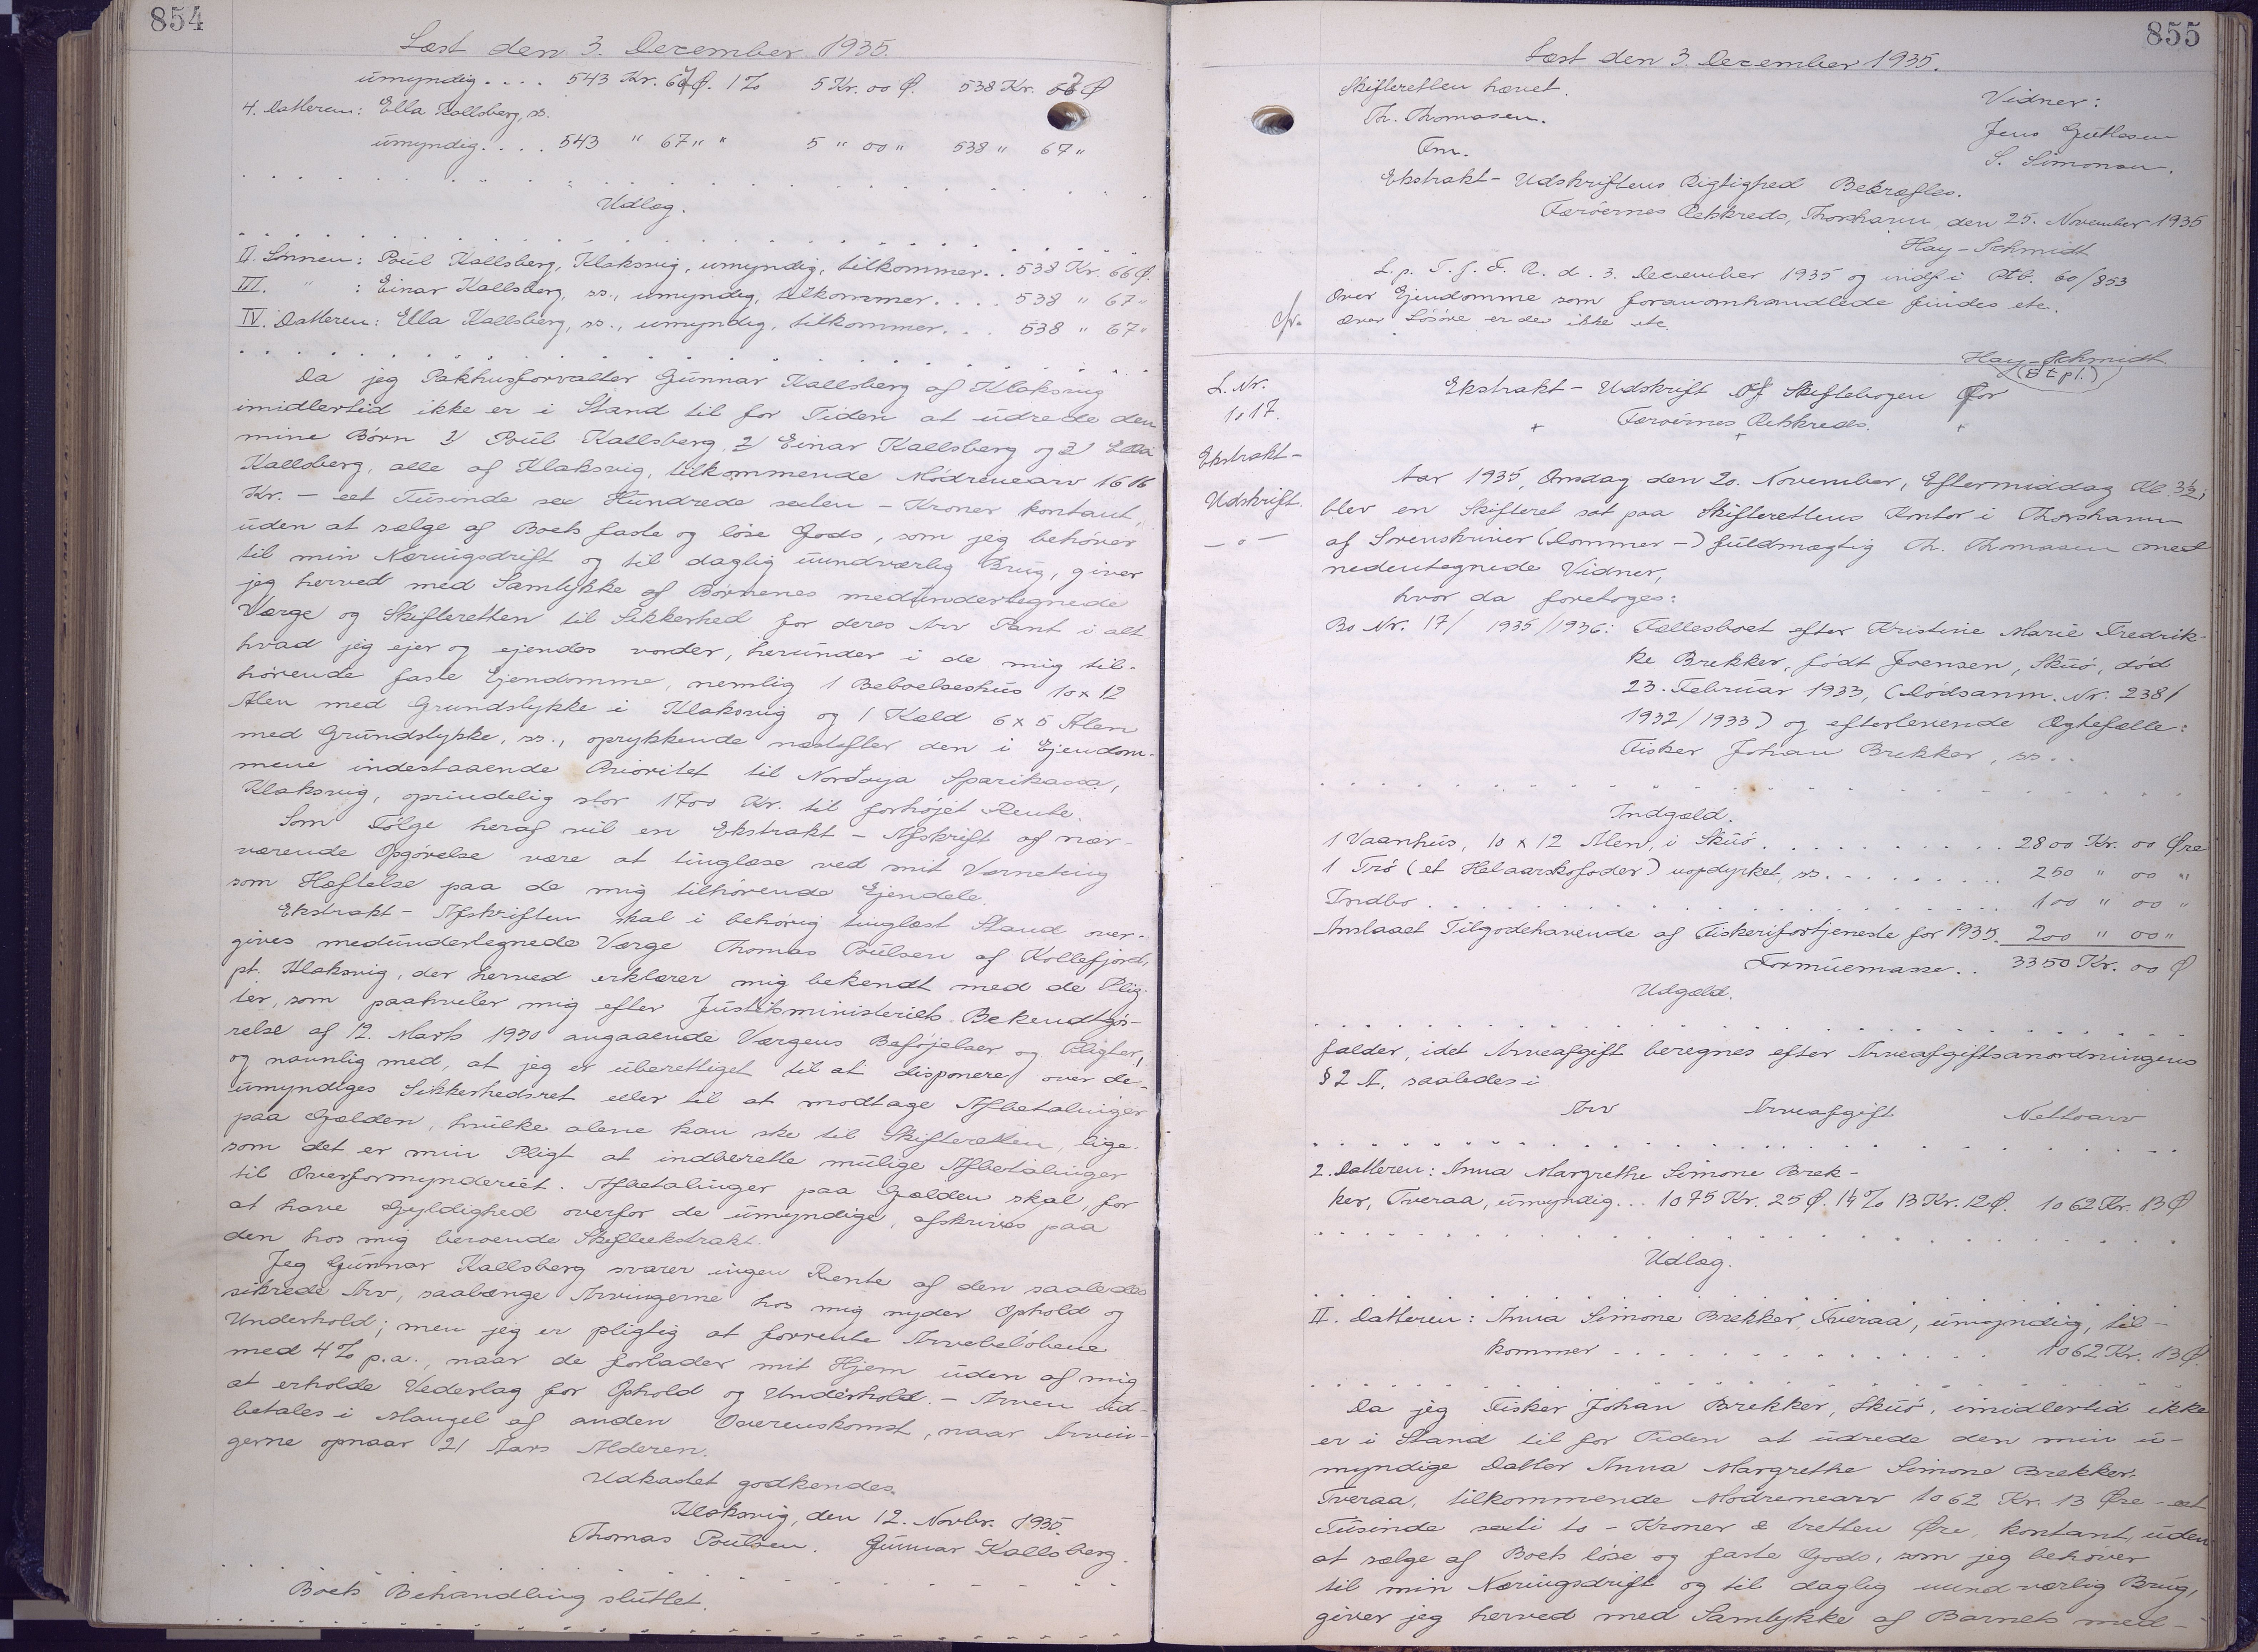 854
Læst den 3. December 1935.
umyndig.... 543 Kr. 67 Ø. 1 % 5 Kr. 00 Ø. 538 Kr. 67 Ø
4. Datteren: Ella Kallsberg, ss.
umyndig.... 543 " 67 " " 5 " 00 " 538 " 67 "
Udlæg.
II. Sønnen: Poul Kallsberg, Klaksvig, umyndig, tilkommer.. 538 Kr. 66 Ø.
III. " : Einar Kallsberg, ss., umyndig, tilkommer.... 538 " 67 "
IV. Datteren: Ella Kallsberg, ss., umyndig, tilkommer... 538 " 67 "
Da jeg Pakhusforvalter Gunnar Kallsberg af Klaksvig
imidlertid ikke er i Stand til for Tiden at udrede den
mine Børn 1/ Poul Kallsberg, 2/ Einar Kallsberg og 3/ Ella
Kallsberg, alle af Klaksvig, tilkommende Mødrenearv 1616
Kr. - eet Tusinde sex Hundrede sexten - Kroner kontant,
uden at sælge af Boets faste og løse Gods, som jeg behøver
til min Næringsdrift og til daglig uundværlig Brug, giver
jeg herved med Samtykke af Børnenes medundertegnede
Værge og Skifteretten til Sikkerhed for deres Arv Pant i alt
hvad jeg ejer og ejendes vorder, herunder i de mig til-
hørende faste Ejendomme, nemlig 1 Beboelseshus 10 x 12
Alen med Grundstykke i Klaksvig og 1 Kæld 6 x 5 Alen
med Grundstykke, ss., oprykkende næstefter den i Ejendom-
mene indestaaende Prioritet til Norðoya Sparikassa,
Klaksvig, oprindelig stor 1700 Kr. til forhøjet Rente.
Som Følge heraf vil en Ekstrakt - Afskrift af nær-
værende Opgørelse være at tinglæse ved mit Værneting
som Hæftelse paa de mig tilhørende Ejendele.
Ekstrakt - Afskriften skal i behørig tinglæst Stand over-
gives medundertegnede Værge Thomas Poulsen af Kollefjord,
pt. Klaksvig, der herved erklærer mig bekendt med de Plig-
ter, som paahviler mig efter Justitsministeriets Bekendtgø-
relse af 12. Marts 1930 angaaende Værgens Beføjelser og Pligter,
og navnlig med, at jeg er uberettiget til at disponere over de
umyndiges Sikkerhedsret eller til at modtage Afbetalinger
paa Gælden, hvilke alene kan ske til Skifteretten, lige-
som det er min Pligt at indberette mulige Afbetalinger
til Overformynderiet. Afbetalinger paa Gælden skal, for
at have Gyldighed overfor de umyndige, afskrives paa
den hos mig beroende Skifteekstrakt.
Jeg Gunnar Kallsberg svarer ingen Rente af den saaledes
sikrede Arv, saalænge Arvingerne hos mig nyder Ophold og
Underhold; men jeg er pligtig at forrente Arvebeløbene
med 4 % p.a., naar de forlader mit Hjem uden af mig
at erholde Vederlag for Ophold og Underhold. - Arven ud-
betales i Mangel af anden Overenskomst, naar Arvin-
gerne opnaar 21 Aars Alderen.
Udkastet godkendes.
Klaksvig, den 12. Novbr. 1935.
Thomas Poulsen. Gunnar Kallsberg.
Boets Behandling sluttet.
855
Læst den 3. December 1935.
Skifteretten hævet.
Vidner:
Th. Thomasen.
Jens Guttesen
Fm.
S. Simonsen.
Ekstrakt - Udskriftens Rigtighed Bekræftes.
Færøernes Retskreds, Thorshavn, den 25. November 1935
Hay - Schmidt
L. p. T. f. F. R. d. 3. December 1935 og indf i Ptb. 60/853
Over Ejendomme som foranomhandlede findes etc.
Over Løsøre er der ikke etc.
Hay - Schmidt
(Stpl.)
L. Nr.
1017.
Ekstrakt -
Udskrift.
Ekstrakt - Udskrift Af Skiftebogen for
Færøernes Retskreds.
Aar 1935, Onsdag den 20. November, Eftermiddag Kl. 3½,
blev en Skifteret sat paa Skifterettens Kontor i Thorshavn
af Sorenskriver (Dommer -) fuldmægtig Th. Thomasen med
nedentegnede Vidner,
hvor da foretoges:
Bo Nr. 17/ 1935/1936: Fællesboet efter Kristine Marie Fredrik-
ke Brekker, født Joensen, Skuø, død
23. Februar 1933, (Dødsanm. Nr. 238/
1932/1933) og efterlevende Ægtefælle:
Fisker Johan Brekker, ss..
Indgæld.
1 Vaanhus, 10 x 12 Alen, i Skuø. . . . 2800 Kr. 00 Øre
1 Trø (et Helaarskofoder) uopdyrket, ss. . . . 250 " 00 "
Indbo . . . 100 " 00 "
Anslaaet Tilgodehavende af Fiskerifortjeneste for 1935. 200 " 00 "
Formuemasse.. 3350 Kr. 00 Ø
Udgæld.
falder, idet Arveafgift beregnes efter Arveafgiftsanordningens
§ 2 A, saaledes:
Arv Arveafgift Nettoarv
2. Datteren: Anna Margrethe Simone Brek-
ker, Tveraa, umyndig... 1075 Kr. 25 Ø. 1¼ % 13 Kr. 12 Ø. 1062 Kr. 13 Ø
Udlæg.
II. Datteren: Anna Simone Brekker, Tveraa, umyndig, til-
kommer . . . 1062 Kr. 13 Ø.
Da jeg Fisker Johan Brekker, Skuø, imidlertid ikke
er i Stand til for Tiden at udrede den min u-
myndige Datter Anna Margrethe Simone Brekker,
Tveraa, tilkommende Mødrenearv 1062 Kr. 13 Øre - eet
Tusinde sexti to - Kroner & tretten Øre, kontant, uden
at sælge af Boets løse og faste Gods, som jeg behøver
til min Næringsdrift og til daglig uundværlig Brug,
giver jeg herved med Samtykke af Barnets med-